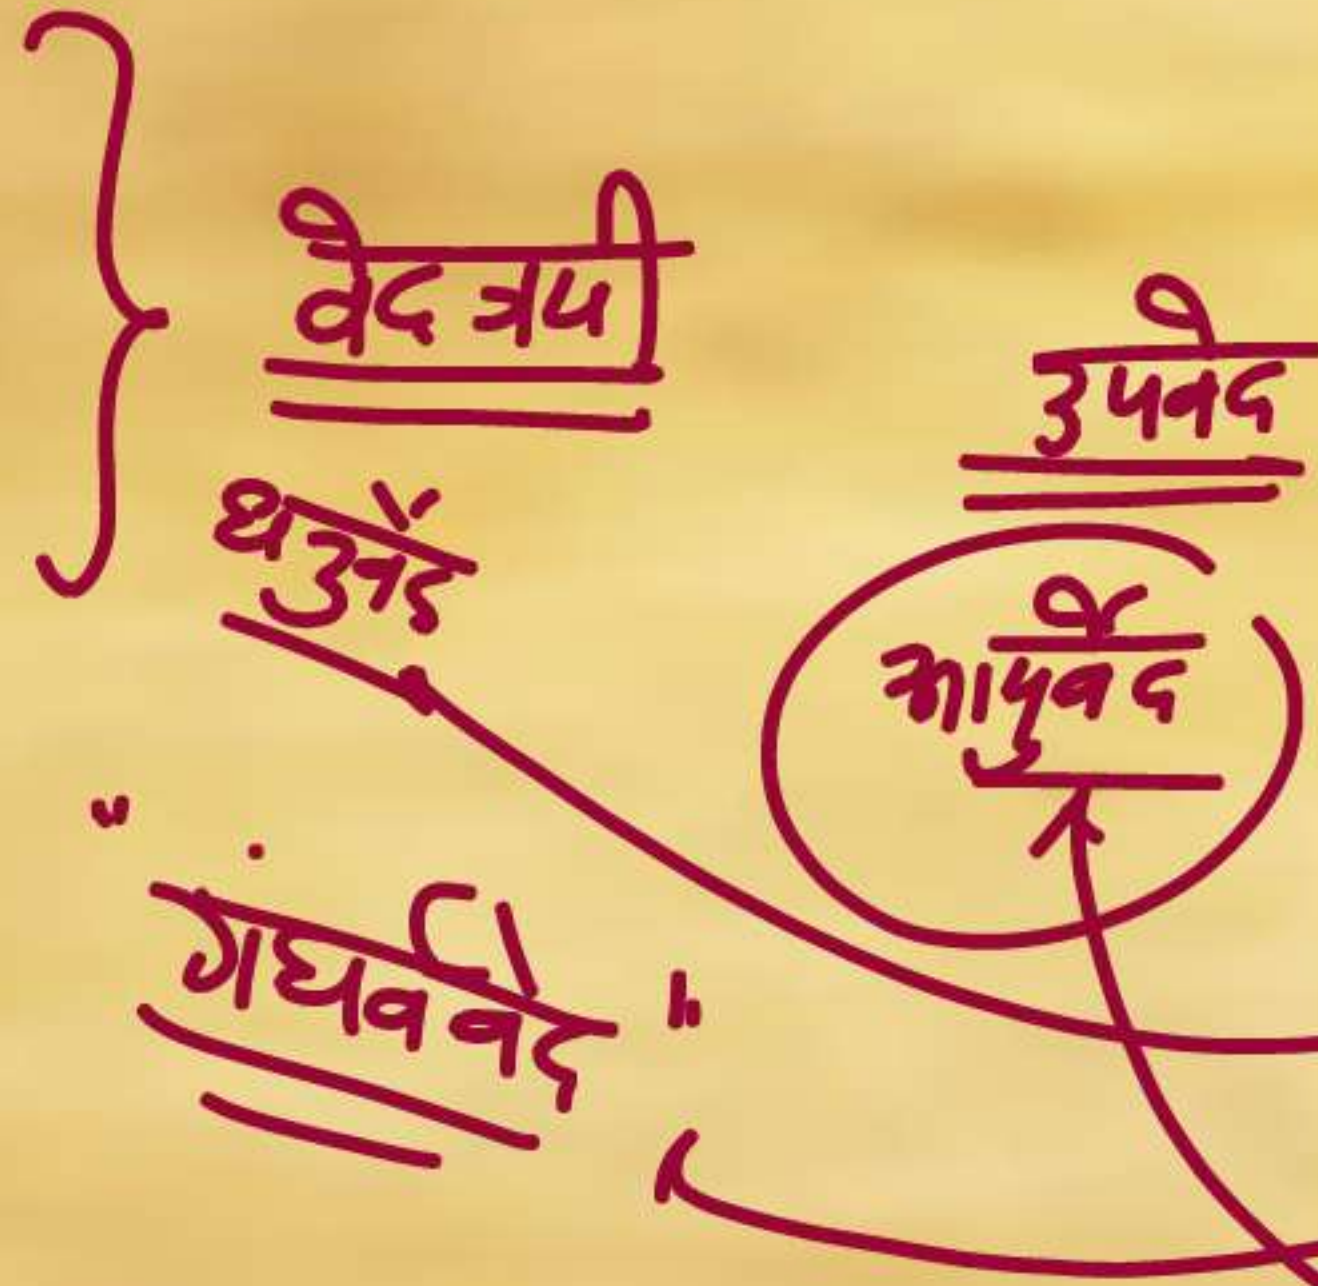 वेद त्रयी
उपवेद
धर्नुवेद
आयुर्वेद
"गंधर्व वेद"